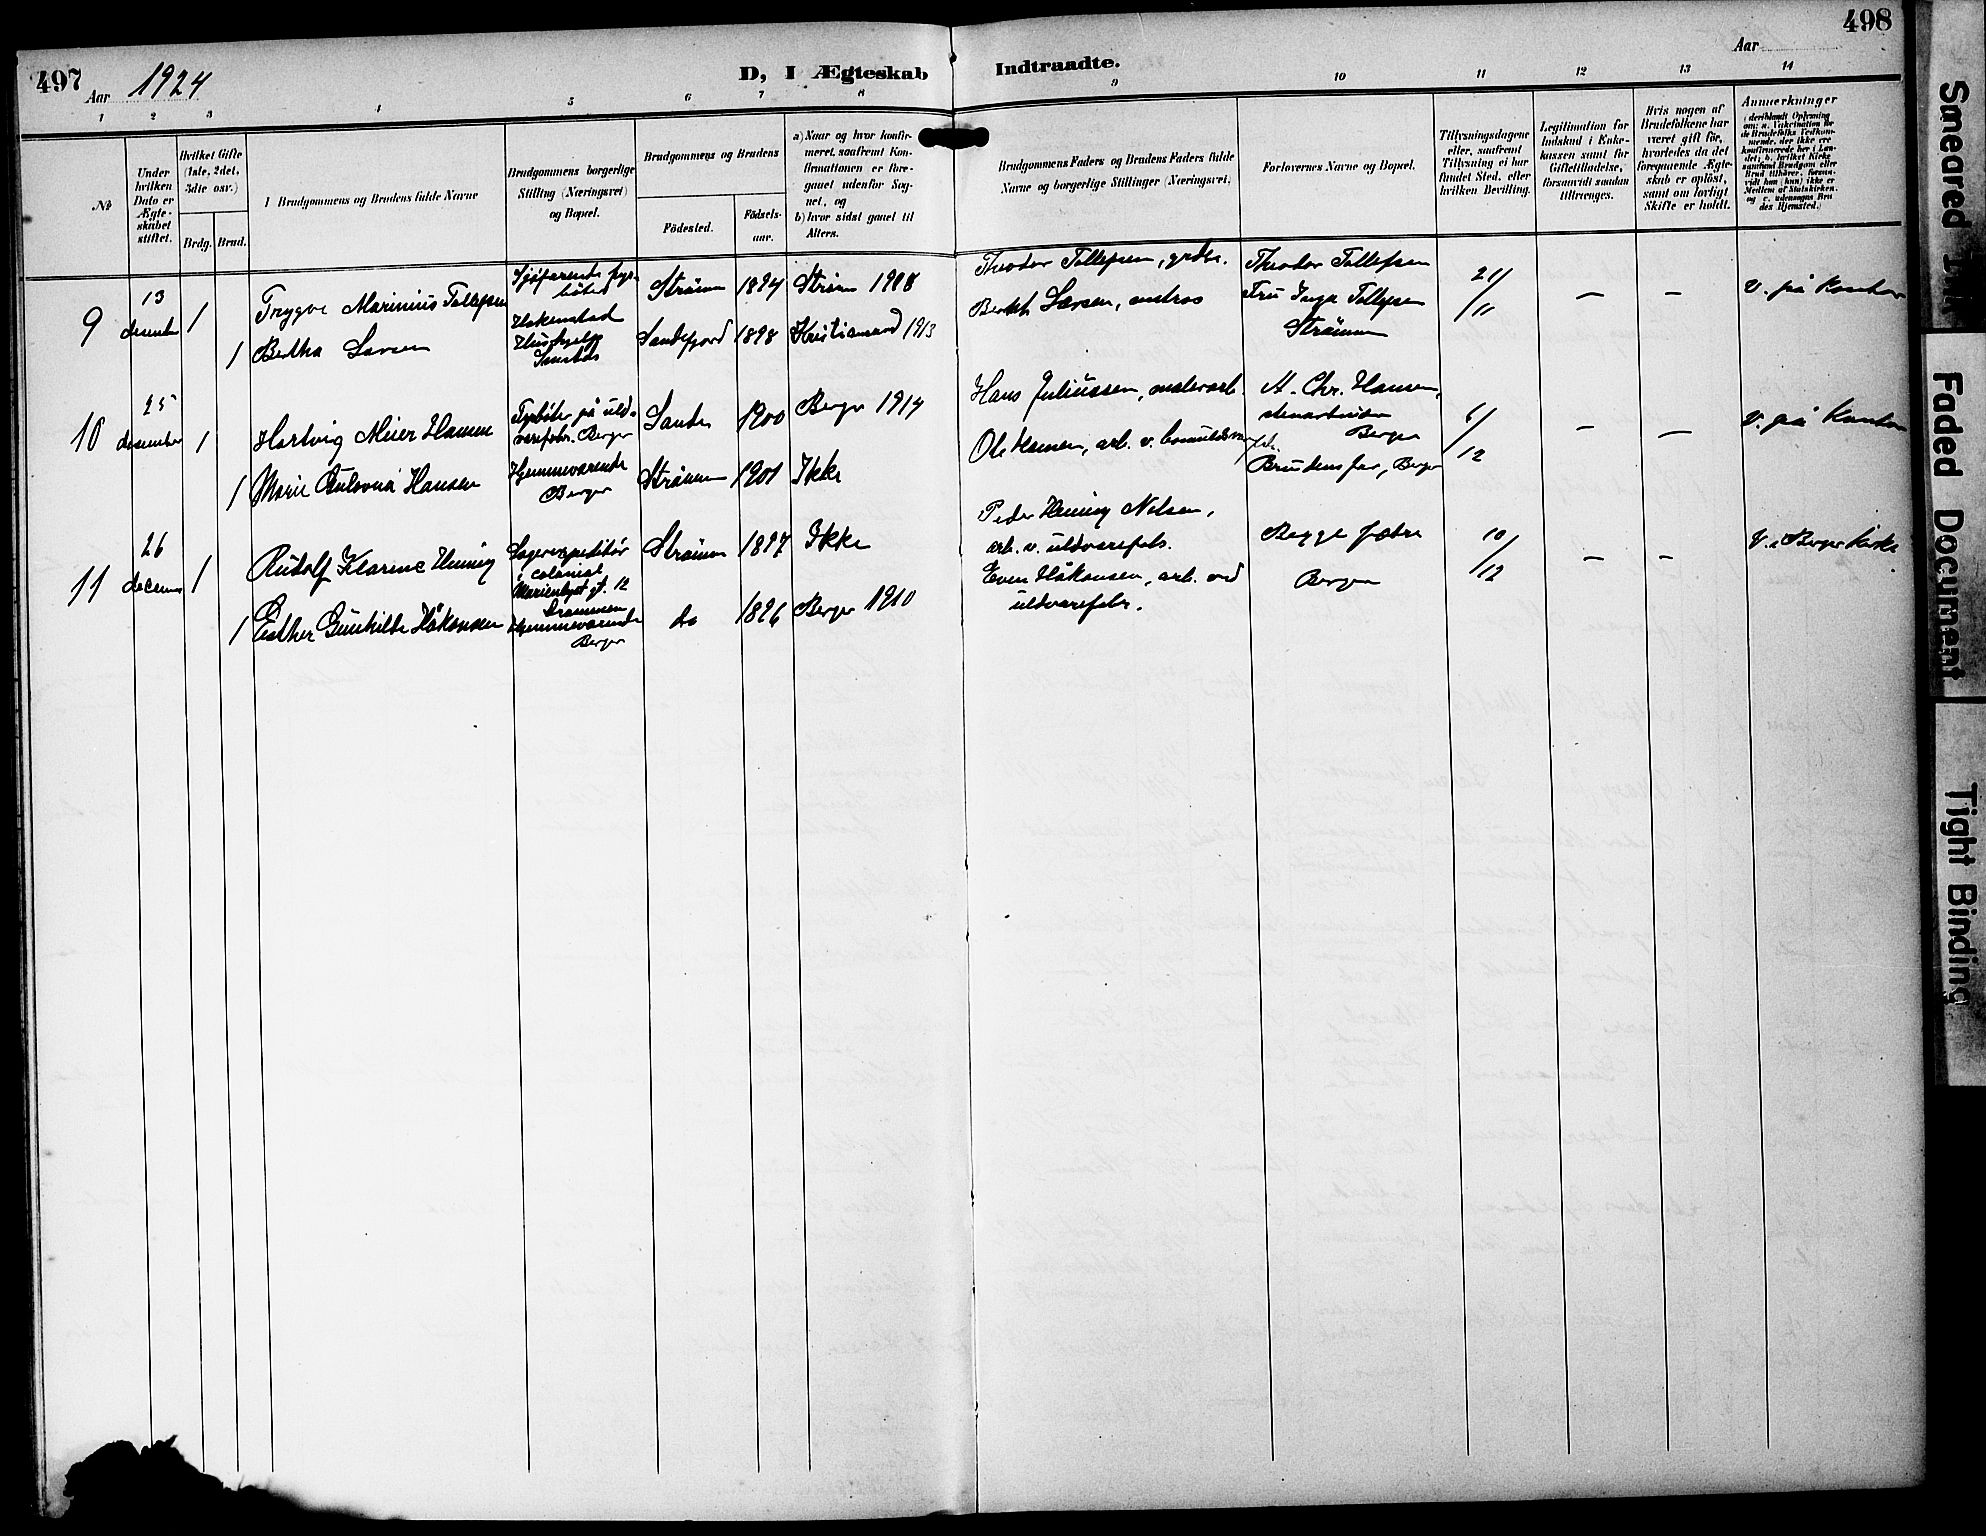 497
Aar 1924
D, I Ægteskab Indtraadte.
Aar
498
1 2 3 4 5 6 7 8 9 10 11 12 13 14
No
Under hvilken Dato er Ægteskabet stiftet.
Hvilket Gifte (1ste, 2det, 3die osv.)
Brdg. Brud.
Brudgommens og Brudens fulde Navne
Brudgommens borgerlige Stilling (Næringsvei) og Bopæl.
Brudgommens og Brudens
Födested.
Födselsaar.
a) Naar og hvor konfirmeret, saafremt Konfirmationen er foregaaet udenfor Sognet, og
b) hvor sidst gaaet til Alters.
Brudgommens Faders og Brudens Faders fulde Navne og borgerlige Stillinger (Næringsvei)
Forlovernes Navne og Bopæl.
Tillysningsdagene eller, saafremt Tillysning ei har fundet Sted, efter hvilken Bevilling.
Legitimation for Indskud i Enkekassen samt for Giftetilladelse, forsaavidt saadan tiltrænges.
Hvis nogen af Brudefolkene har været gift för, hvorledes da det foregaaende Ægteskab er oplöst, samt om lovligt Skifte er holdt.
Anmærkninger
9
13 desember
1
Trygve Marinius Tollefsen
Sjøfarende fyrbøter
Strömm 1894
Strömm 1908
Theodor Tollefsen, grdbr.
Theodor Tollefsen
21/11
—
—
v. på kontor
1
Bertha Larsen
Sandefjord 1898
Kristiansand 1913
Larsen, matros
Fru Inga Tollefsen
Strömm
10
25 desember
1
Hartvig Meier Hansen
Fyrbøter på uldvarefabr. Berger
Sande 1900
Berger 1914
Hans Juliussen, malerarb.
A. Chr. Hansen,
stenarbeider
Berger
6/12
—
—
v. på kontor
1
Marie Hansen
Hjemmeværende
Berger
Strömm 1901
Ikke
Ole Hansen, arb. v. bomuldsvarefab.
Brudens far, Berger
11
26 december
1
Rudolf Klarine Hennig
Lagerexpeditør
i colonial
Marienlyst gt. 12
Drammen
Strömm 1897
Ikke
Peder Hennig Nelsen,
arb. v. uldvarefab.
Begge fædre
Berger
10/12
—
—
V. i Berger kirke
1
Esther Gunhilde Håkonsen
Hjemmeværende
Berger
do 1896
Berger 1910
Even Håkonsen, arb. ved
uldvarefabr.
Smeared Ink
Faded Document
Tight Binding